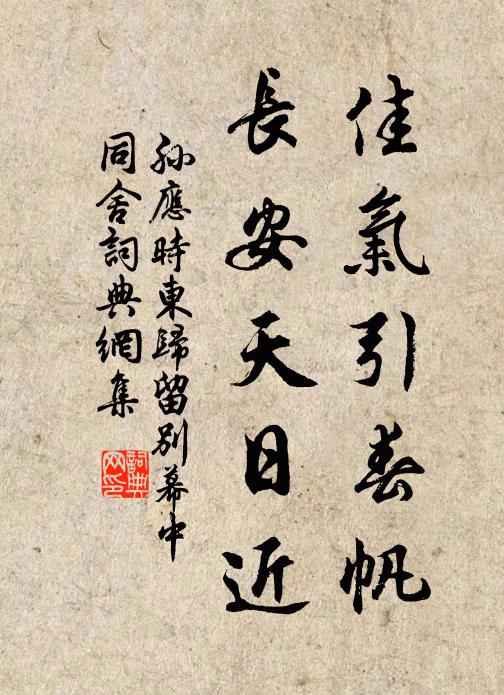 佳氣引春帆
長安天日近
孫應時東歸留別幕中
同舍詞典網集
詞典網印